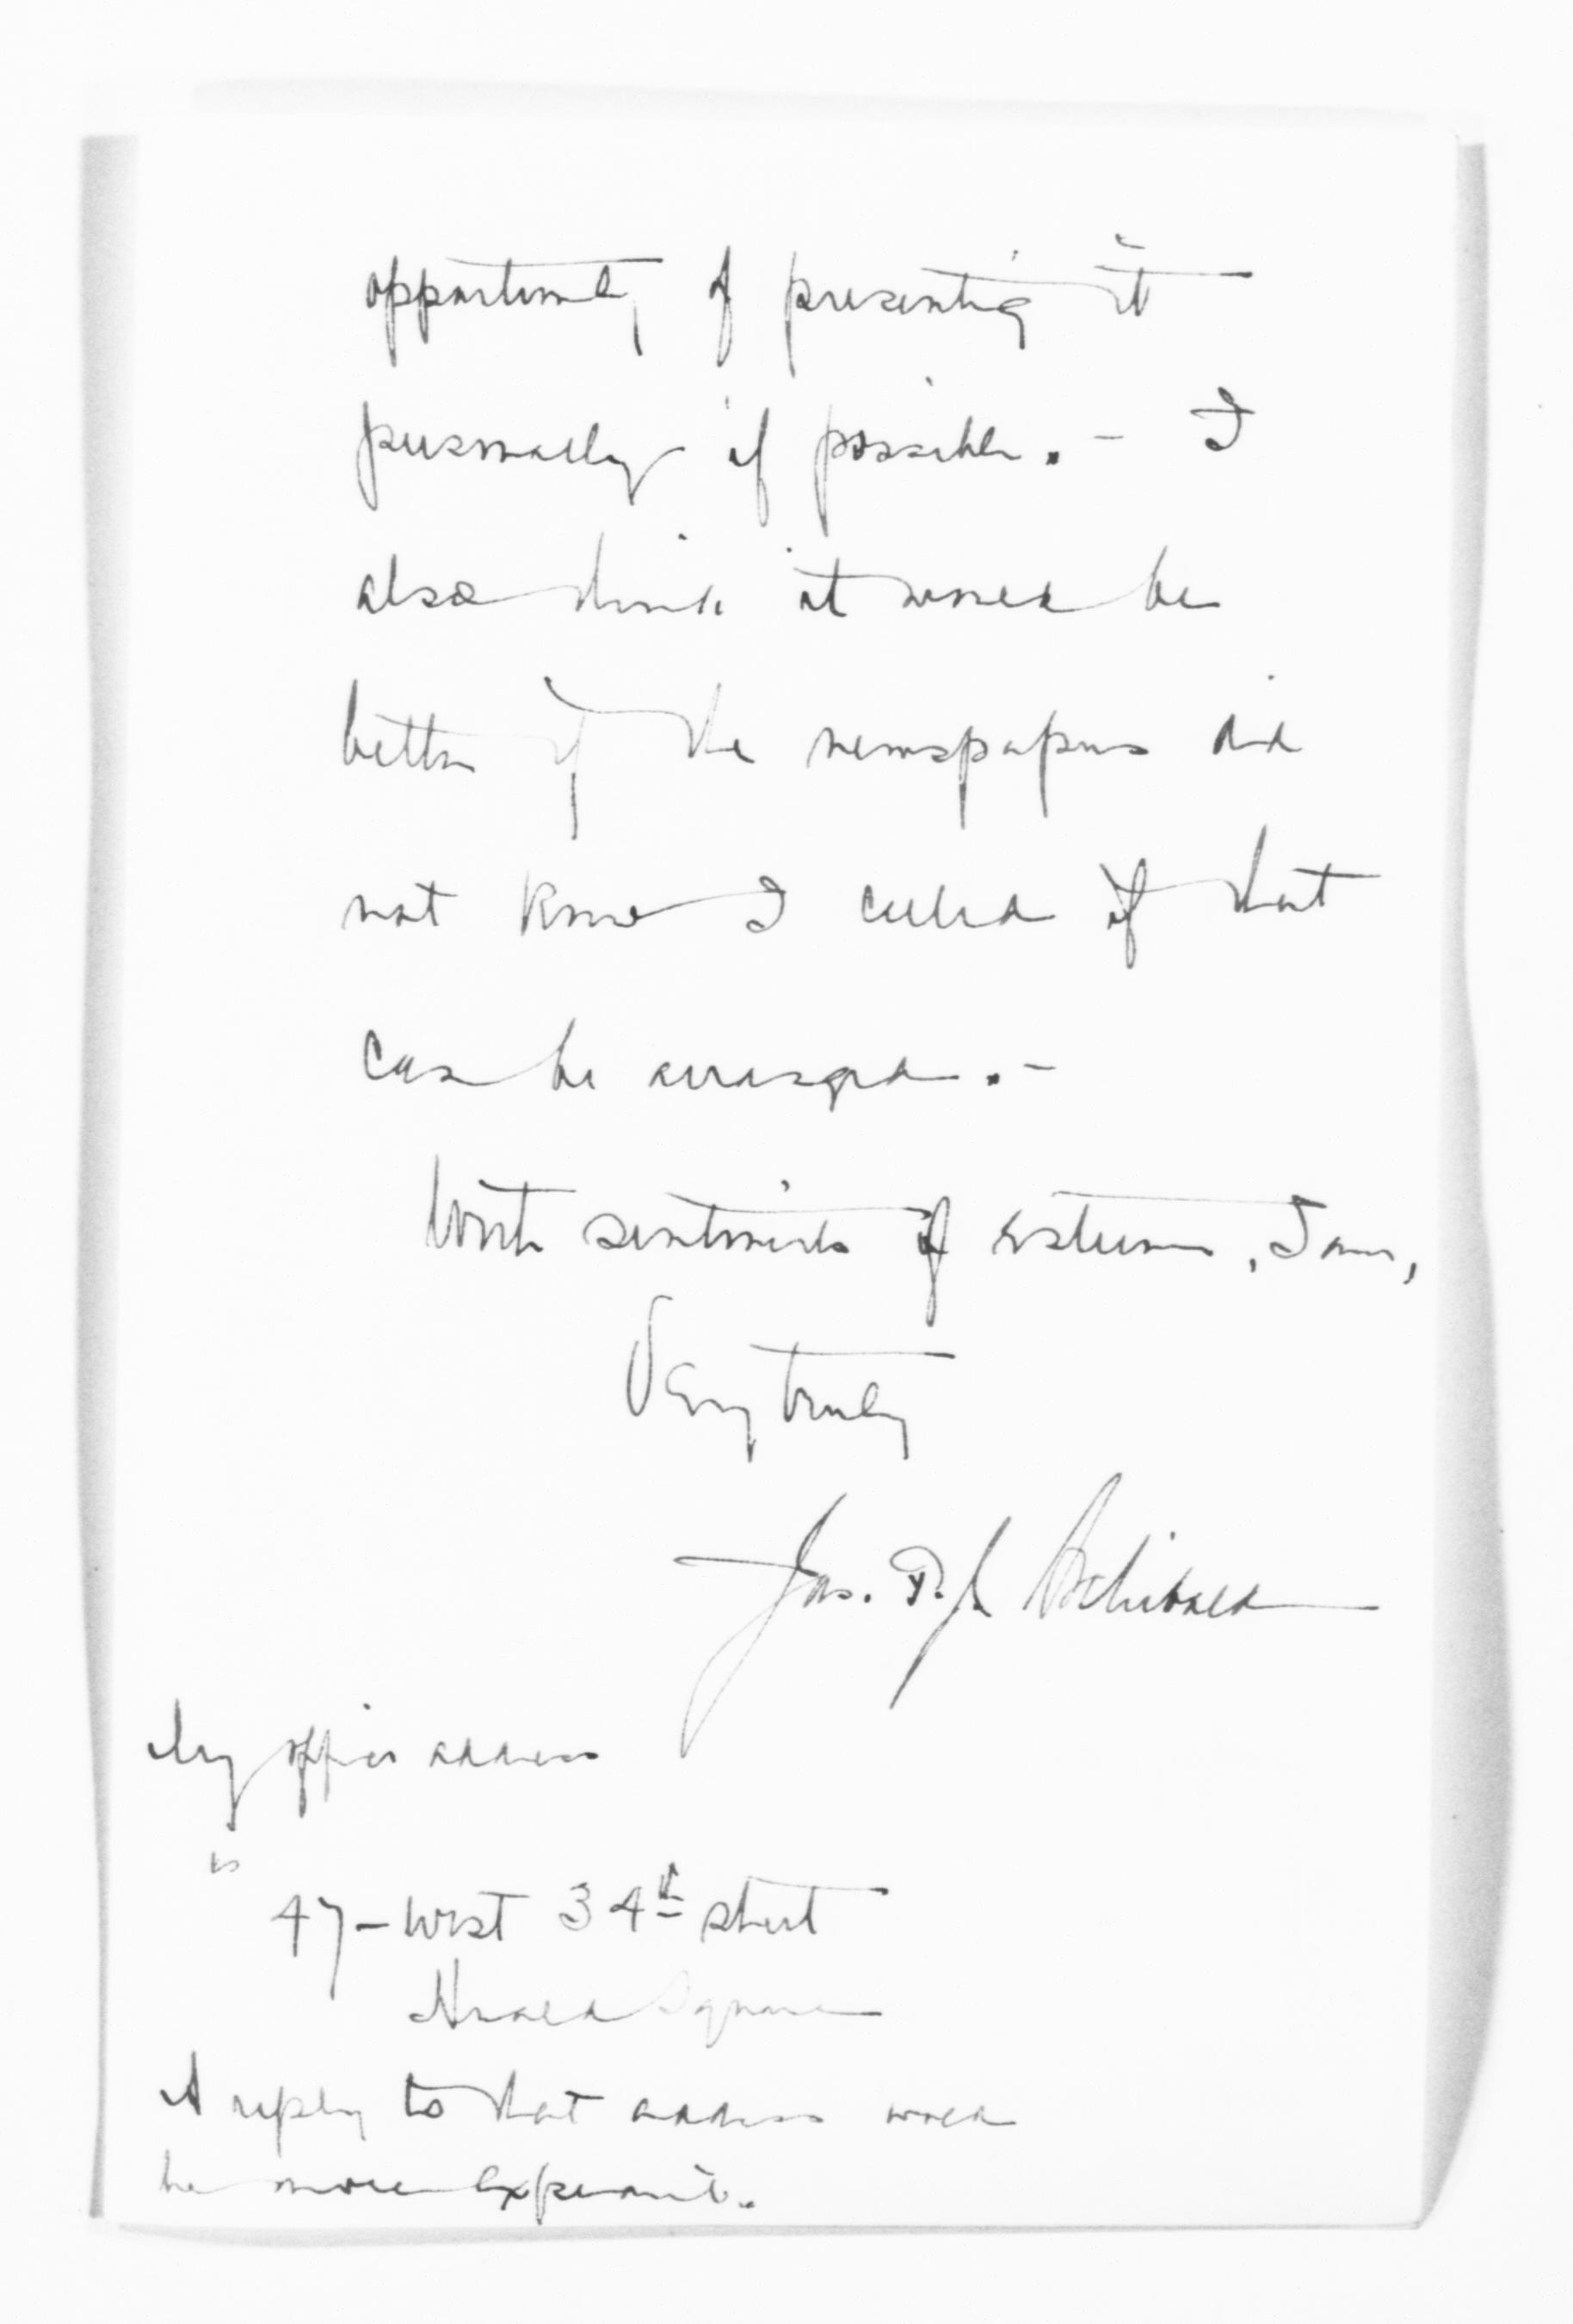 opportunity of presenting it
personally if possible. - I
also think it would be
better if the newspapers did
not know I called if that
can be arranged. -
With sentiments of esteem, I am,
Very truly
Jas. F. J. Archibald
My office address
is
47 - West 34th street
Herald Square
A reply to that address would
be more expedient.